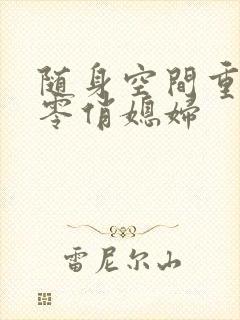 随身空間重
零俏媳婦
雷尼尔山